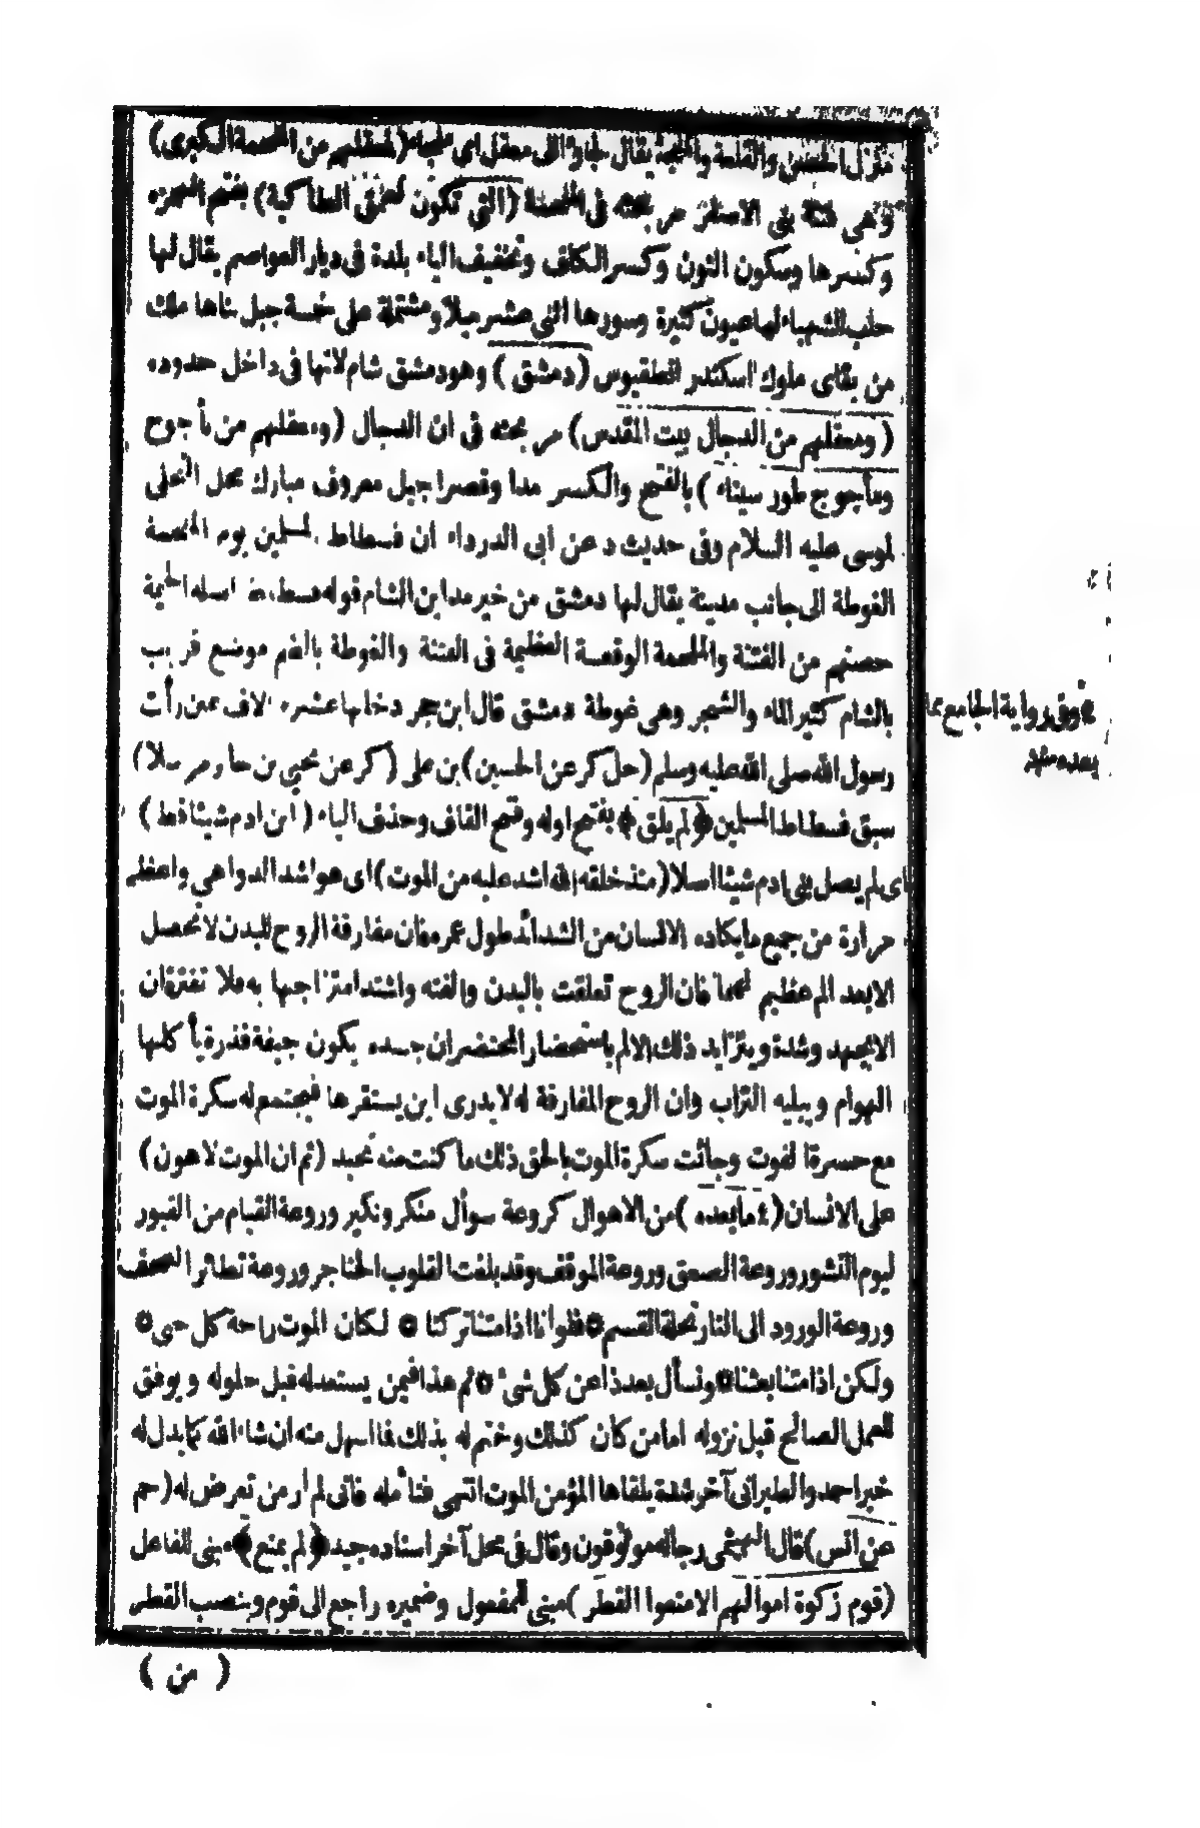 منزل الحصن والقلعة والملجأ يقال لجأوا الى معقل اى ملجاء (لمعقلهم من الملحمة الكبرى)
وهى فتنة بنى الاصفر مر بحثه فى الملحمة (التى تكون لعمق انطاكية) بفتح الهمزه
وكسرها وسكون النون وكسر الكاف وتخفيف الياء بلدة فى ديار العواصم يقال لها
حلب الشهباء لها عيون كثيرة وسورها اثنى عشر ميلا ومشتملة على خمسة جبل بناها ملك
من بقاى ملوك اسكندر انطقيوس (دمشق) وهو دمشق شام لانها فى داخل حدوده
(ومعقلهم من الدجال بيت المقدس) مر بحثه فى ان الدجال (ومعقلهم من يأجوج
ومأجوج طور سيناء) بالفتح والكسر مدا وقصرا جبل معروف مبارك محل التجلى
لموسى عليه السلام وفى حديث د عن ابى الدرداء ان فسطاط المسلمين يوم الملحمة
الغوطة الى جانب مدينة يقال لها دمشق من خير مداين الشام قوله فسطاط اصله الخيمة
حصنهم من الفتنة والملحمة الوقعة العظيمة فى الفتنة والغوطة بالضم موضع قريب
بالشام كثير الماء والشجر وهى غوطة دمشق قال ابن حجر دخلها عشرة آلاف عين رأت
رسول الله صلى الله عليه وسلم (حل كر عن الحسين) بن على (كر عن يحيى بن جابر مرسلا)
سبق فسطاط المسلمين ﴿لم يلق﴾ بفتح اوله وفتح القاف وحذف الياء (ابن ادم شيئا قط)
اى لم يصل بنى ادم شيئا اصلا (منذ خلقه الله اشد عليه من الموت) اى هو اشد الدواهى واعظم
حرارة من جميع ما يكاده الانسان من الشدائد طول عمره فان مفارقة الروح للبدن لا تحصل
الا بعد الم عظيم لهما فان الروح تعلقت بالبدن والفته واشتد امتزاجها به فلا تفترقان
الا بجهد وشدة ويتزايد ذلك الالم باستحضار المحتضر ان جسده يكون جيفة قذرة يأكلها
الهوام ويبليه التراب وان الروح المفارقة له لا يدرى اين يستقرها فيجتمع له سكرة الموت
مع حسرة الفوت وجائت سكرة الموت بالحق ذلك ما كنت منه تحيد (ثم ان الموت لاهون)
على الانسان (٤ مابعده) من الاهوال كروعة سوأل منكر ونكير وروعة القيام من القبور
ليوم النشور وروعة الصعق وروعة الموقف وقد بلغت القلوب الحناجر وروعة تطائر الصحف
وروعة الورود الى النار تحلة القسم ۞ فلو انا اذا متنا تركنا ۞ لكان الموت راحة كل حى ۞
ولكن اذا متنا بعثنا ۞ ونسأل بعد ذا عن كل شئ ۞ ثم هذا فيمن يستعد له قبل حلوله ويوفق
للعمل الصالح قبل نزوله اما من كان كذلك وختم له بذلك فما اسهل منه ان شاء الله كما يدل له
خبر احمد والطبرانى آخر شدة يلقاها المؤمن الموت انتهى فتأمله فانى لم ار من تعرض له (حم
عن انس) قال الهيثمى رجاله موثوقون وقال فى محل آخر اسناده جيد ﴿لم يمنع﴾ مبنى للفاعل
(قوم زكوة اموالهم الا منعوا القطر) مبنى للمفعول وضميره راجع الى قوم وبنصب القطر
(من)
٤ وفى رواية الجامع لما
بعده